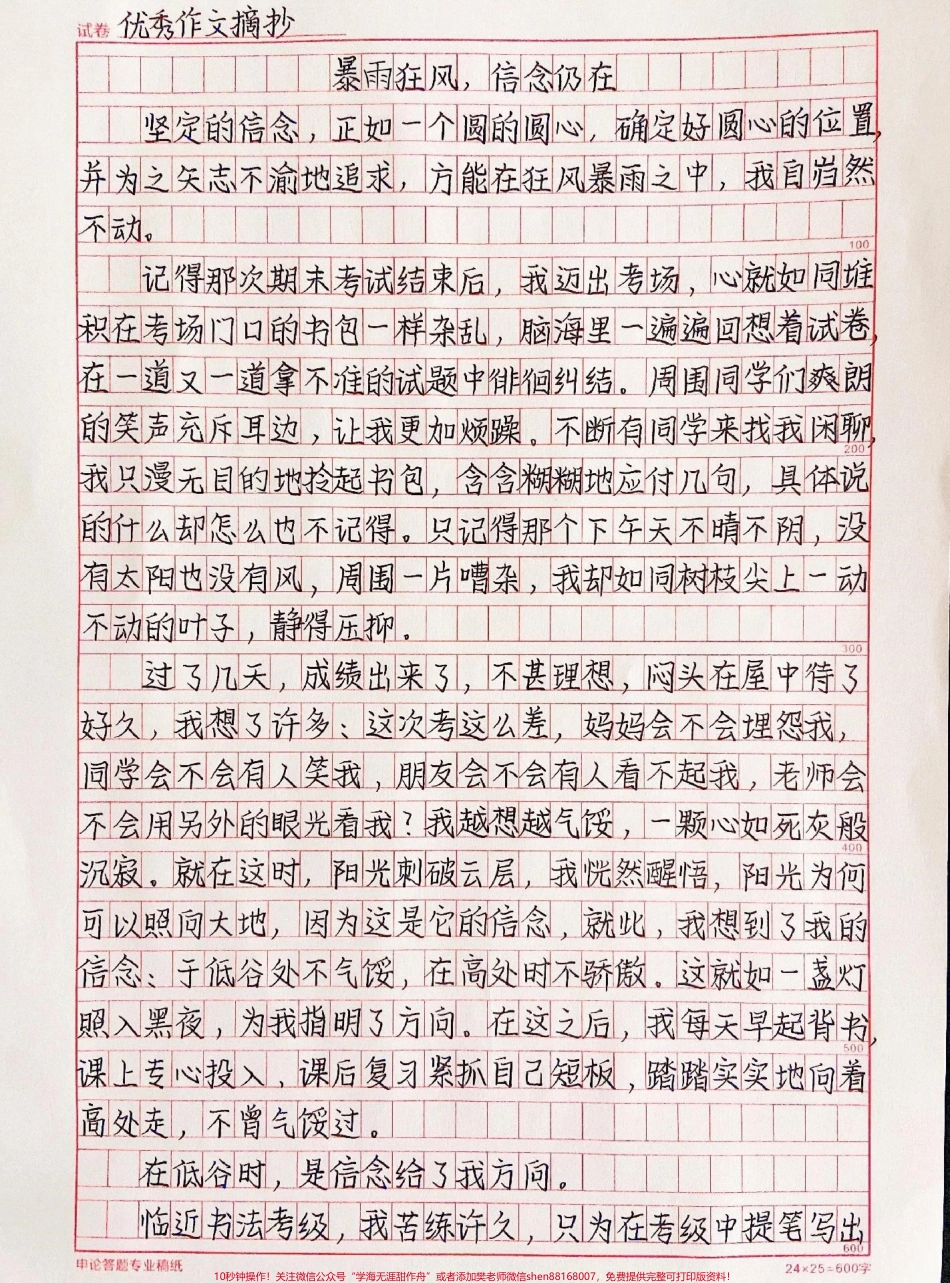 试卷 优秀作文摘抄
暴雨狂风，信念仍在
坚定的信念，正如一个圆的圆心，确定好圆心的位置，
并为之矢志不渝地追求，方能在狂风暴雨之中，我自岿然
不动。
100
记得那次期末考试结束后，我迈出考场，心就如同堆
积在考场门口的书包一样杂乱，脑海里一遍遍回想着试卷，
在一道又一道拿不准的试题中徘徊纠结。周围同学们爽朗
的笑声充斥耳边，让我更加烦躁。不断有同学来找我闲聊，
200
我只漫无目的地捡起书包，含含糊糊地应付几句，具体说
的什么却怎么也不记得。只记得那个下午天不晴不阴，没
有太阳也没有风，周围一片嘈杂，我却如同树枝尖上一动
不动的叶子，静得压抑。
300
过了几天，成绩出来了，不甚理想，闷头在屋中待了
好久，我想了许多：这次考这么差，妈妈会不会埋怨我，
同学会不会有人笑我，朋友会不会有人看不起我，老师会
不会用另外的眼光看我？我越想越气馁，一颗心如死灰般
400
沉寂。就在这时，阳光刺破云层，我恍然醒悟，阳光为何
可以照向大地，因为这是它的信念，就此，我想到了我的
信念：于低谷处不气馁，在高处时不骄傲。这就如一盏灯
照入黑夜，为我指明了方向。在这之后，我每天早起背书，
500
课上专心投入，课后复习紧抓自己短板，踏踏实实地向着
高处走，不曾气馁过。
在低谷时，是信念给了我方向。
临近书法考级，我苦练许久，只为在考级中提笔写出
600
申论答题专业稿纸 24×25=600字
10秒钟操作！关注微信公众号“学海无涯甜作舟”或者添加樊老师微信shen88168007，免费提供完整可打印版资料！